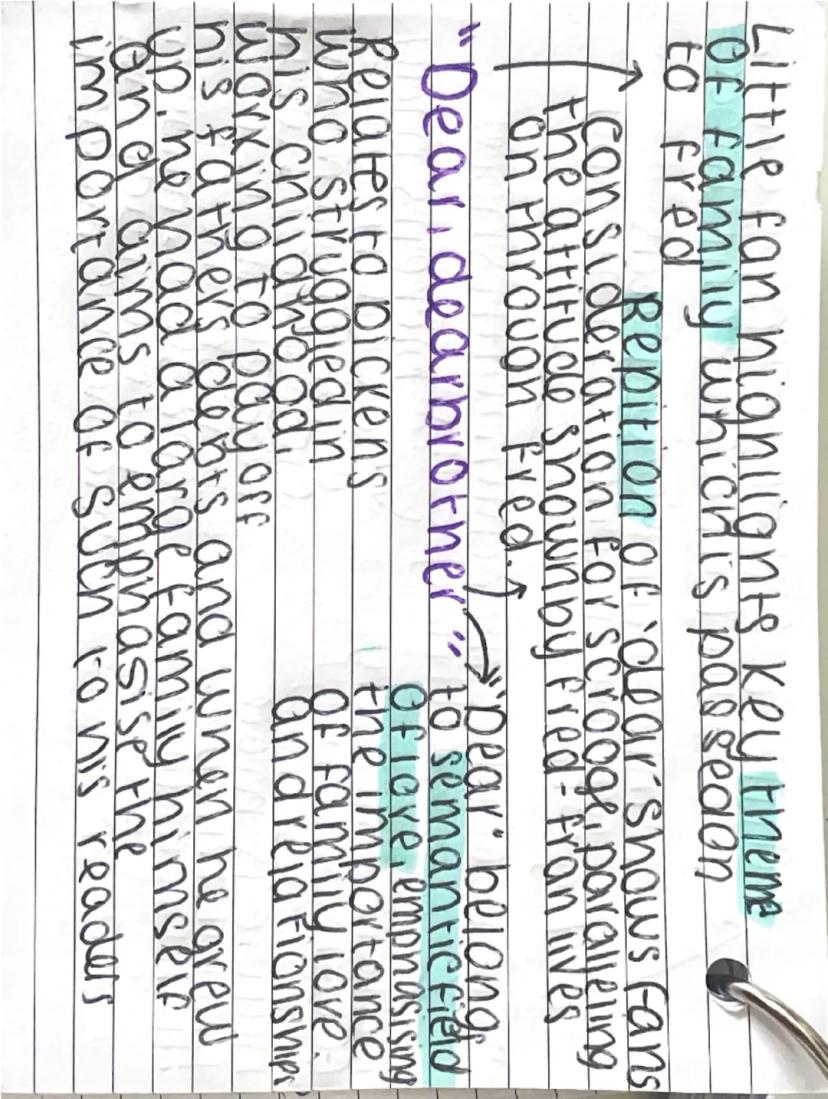 Little fan highlights key theme
of family which is passed on
to fred
Repition of 'dear' shows fans
consideration for scrooge, paralleling
the attitude shown by fred - fran lives
on through fred.
"Dear, dear brother"
"Dear" belong
to semantic field
of love, emphasising
the importance
of family love
and relationships
Relates to dickens
who struggled in
his childhood,
working to pay off
his fathers debts and when he grew
up, he had a large family himself
and aims to emphasise the
importance of such to his readers